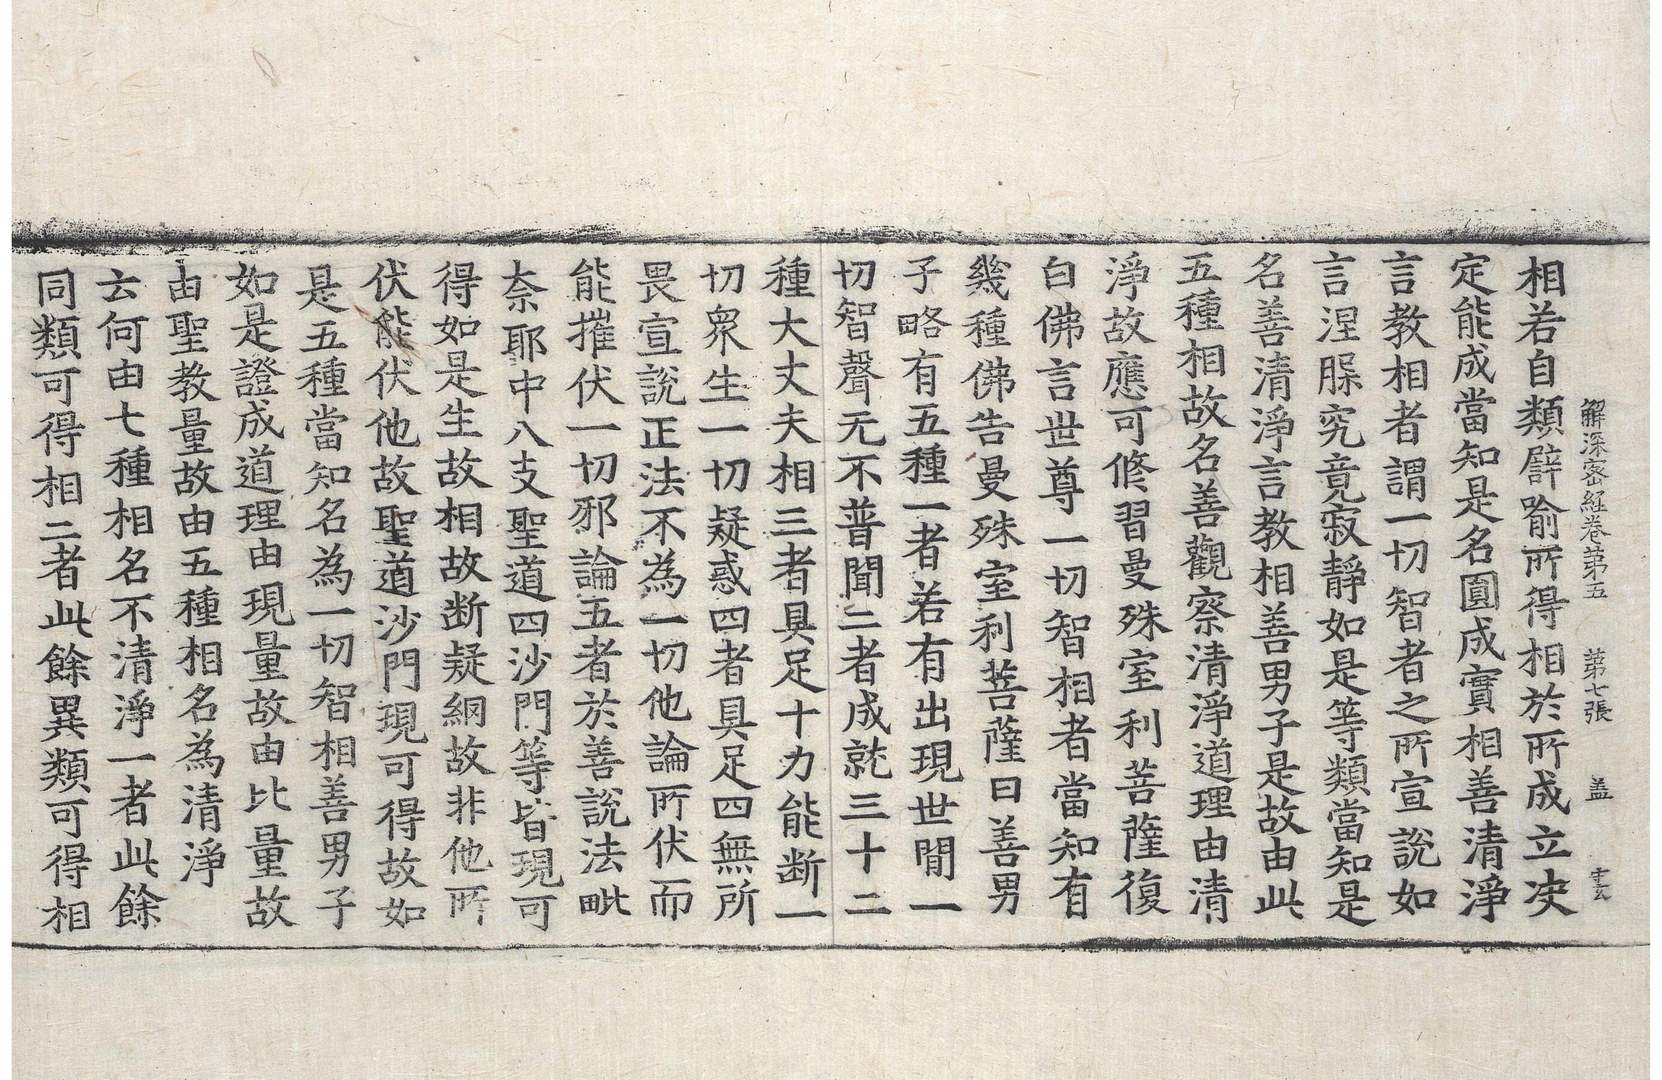 解深密経卷第五　第七張　盖
相若自類辟喻所得相於所成立决
定能成當知是名圓成實相善清淨
言教相者謂一切智者之所宣說如
言涅槃究竟寂靜如是等類當知是
名善清淨言教相善男子是故由此
五種相故名善觀察清淨道理由清
淨故應可修習曼殊室利菩薩復
白佛言世尊一切智相者當知有
幾種佛告曼殊室利菩薩曰善男
子略有五種一者若有出現世間一
切智聲无不普聞二者成就三十二
種大丈夫相三者具足十力能断一
切衆生一切疑惑四者具足四無所
畏宣說正法不為一切他論所伏而
能摧伏一切邪論五者於善說法毗
奈耶中八支聖道四沙門等皆現可
得如是生故相故断疑網故非他所
伏能伏他故聖道沙門現可得故如
是五種當知名為一切智相善男子
如是證成道理由現量故由比量故
由聖教量故由五種相名為清淨
云何由七種相名不清淨一者此餘
同類可得相二者此餘異類可得相